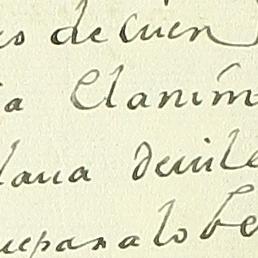 os de cien
a Clanim
laua deuile
uepanalobe